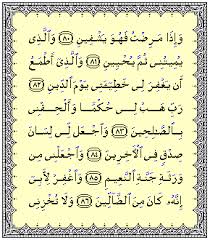 وَإِذَا مَرِضْتُ فَهُوَ يَشْفِينِ ﴿٨٠﴾ وَٱلَّذِى
يُمِيتُنِى ثُمَّ يُحْيِينِ ﴿٨١﴾ وَٱلَّذِىٓ أَطْمَعُ
أَن يَغْفِرَ لِى خَطِيٓـَٔتِى يَوْمَ ٱلدِّينِ ﴿٨٢﴾
رَبِّ هَبْ لِى حُكْمًا وَأَلْحِقْنِى
بِٱلصَّـٰلِحِينَ ﴿٨٣﴾ وَٱجْعَل لِّى لِسَانَ
صِدْقٍ فِى ٱلْـَٔاخِرِينَ ﴿٨٤﴾ وَٱجْعَلْنِى مِن
وَرَثَةِ جَنَّةِ ٱلنَّعِيمِ ﴿٨٥﴾ وَٱغْفِرْ لِأَبِىٓ
إِنَّهُۥ كَانَ مِنَ ٱلضَّآلِّينَ ﴿٨٦﴾ وَلَا تُخْزِنِى